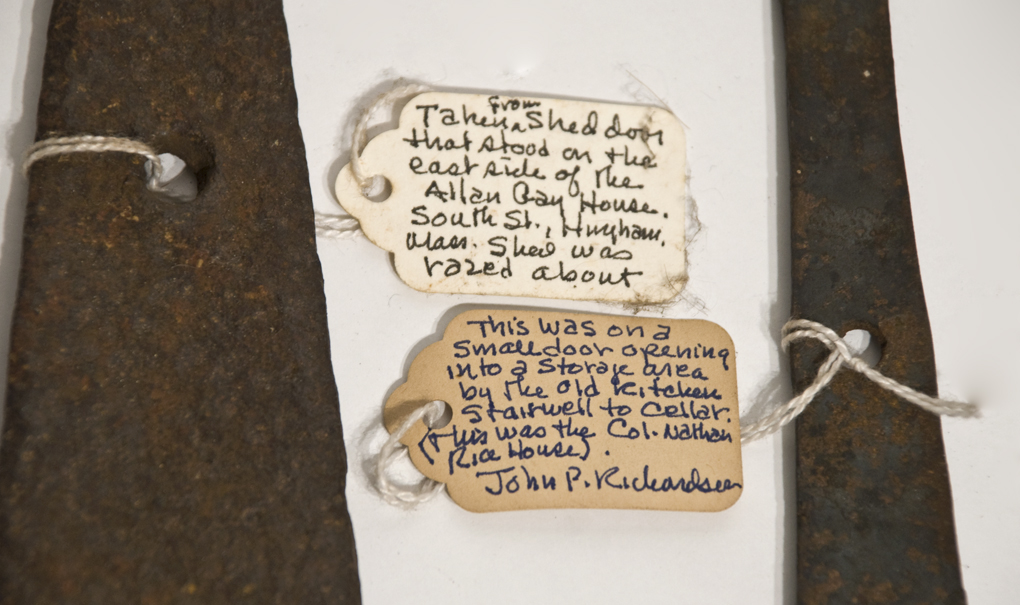 Taken from Shed door
that stood on the
east side of the
Allan Gay House.
South St., Hingham,
Mass. Shed was
razed about
This was on a
small door opening
into a Storage area
by the old Kitchen
stairwell to Cellar.
(this was the Col. Nathan
Rice House).
John P. Richardson